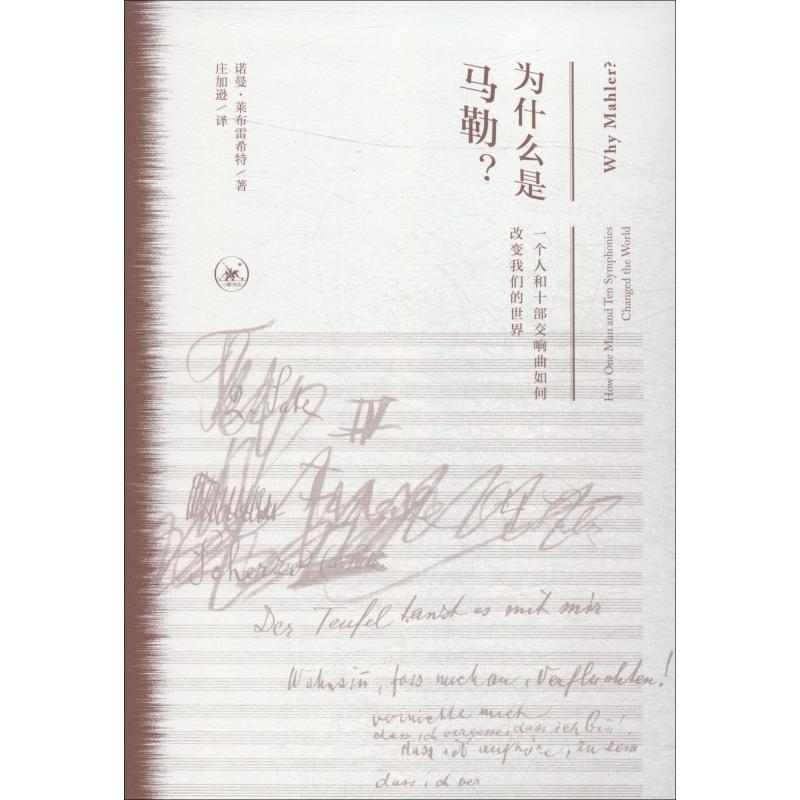 Why Mahler?
How One Man and Ten Symphonies
Changed the World
为什么是
马勒?
一个人和十部交响曲如何
改变我们的世界
诺曼·莱布雷希特/著
庄加逊/译
IV
Scherzo
Der Teufel tanzt es mit mir
Wahnsinn, fass mich an, Verfluchten!
vernichte mich
dass ich vergesse, dass ich bin!
dass ich aufhöre, zu sein
dass ich ver